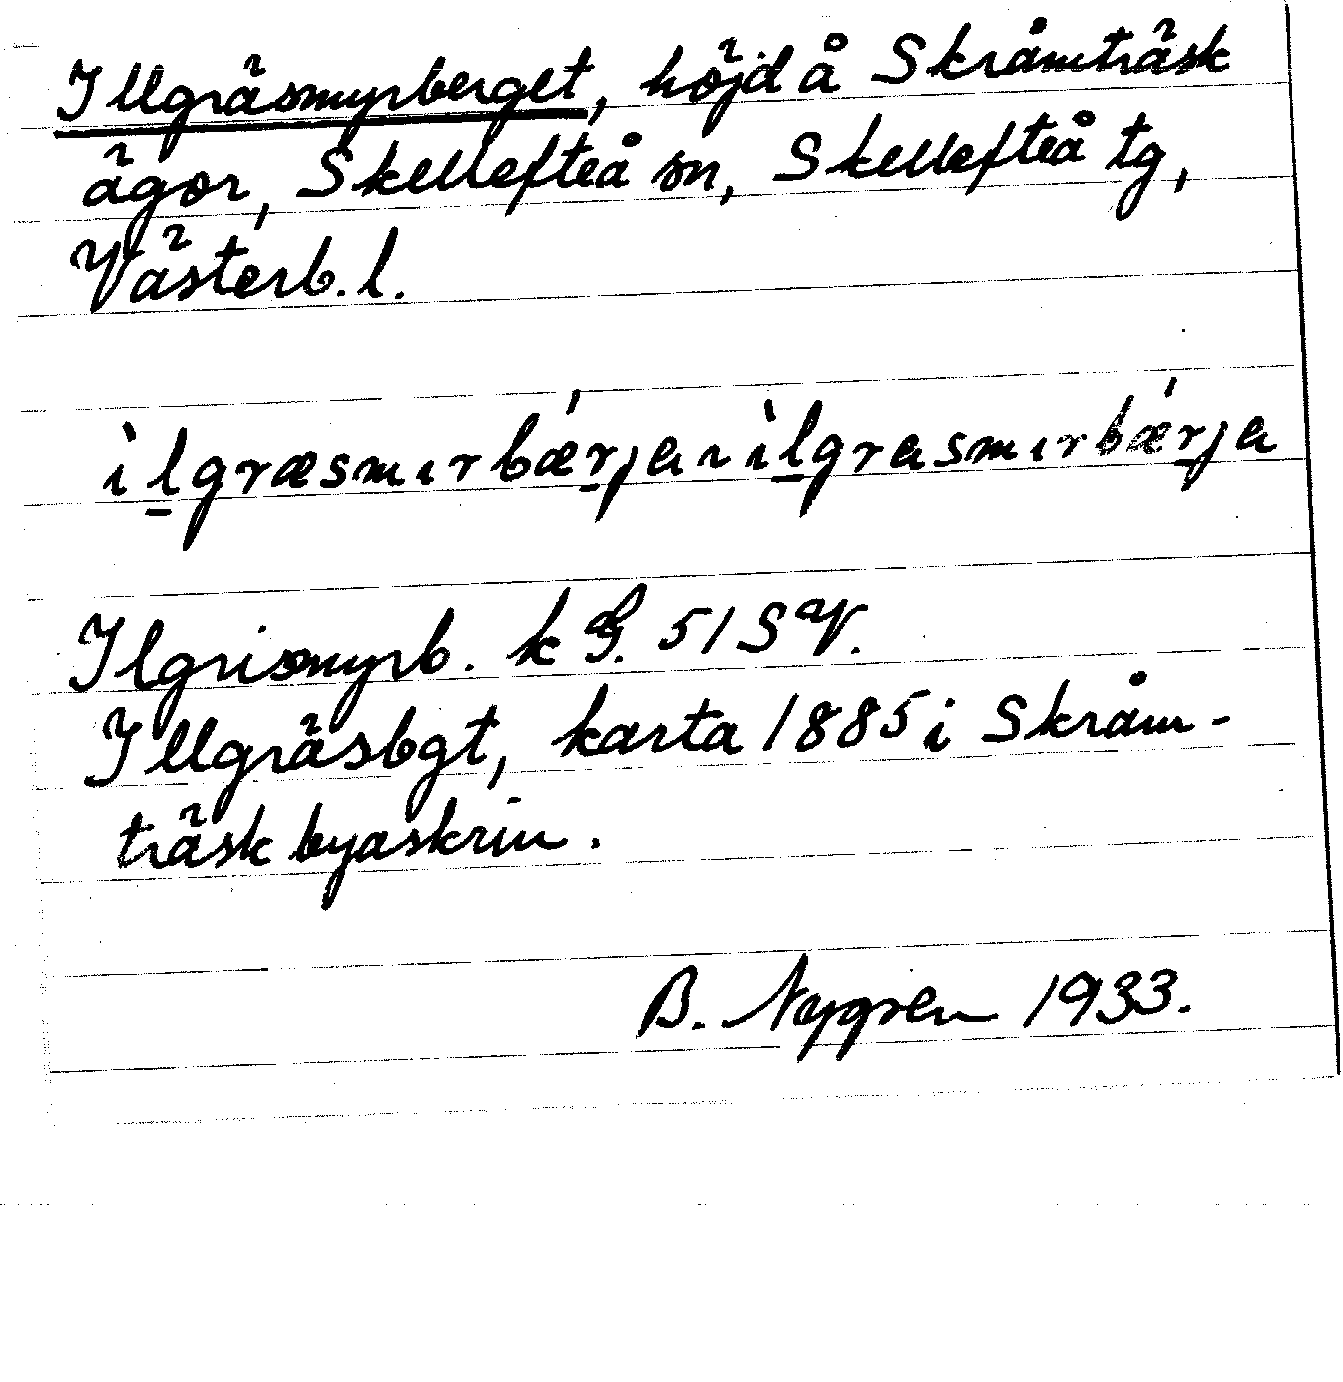 Illgräsmyrberget, höjd å Skråmträsk
ägor, Skellefteå sn, Skellefteå tg,
Västerb. l.
ìlgræsmɩrbǽrjɐ ~ ìlgrɐsmɩrbǽrjɐ
Ilgrismyrb. k G. 51 SV.
Illgräsbgt, karta 1885 i Skråm-
träsk byaskrin.
B. Nygren 1933.